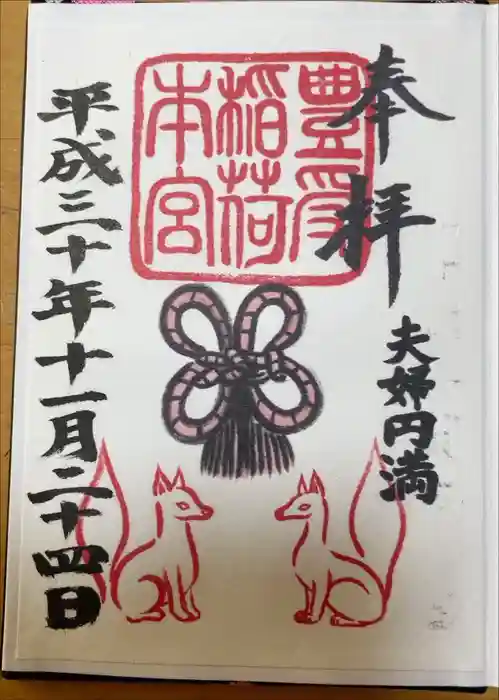 奉拝
夫婦円満
豊受
稲荷
本宮
平成三十年十一月二十四日